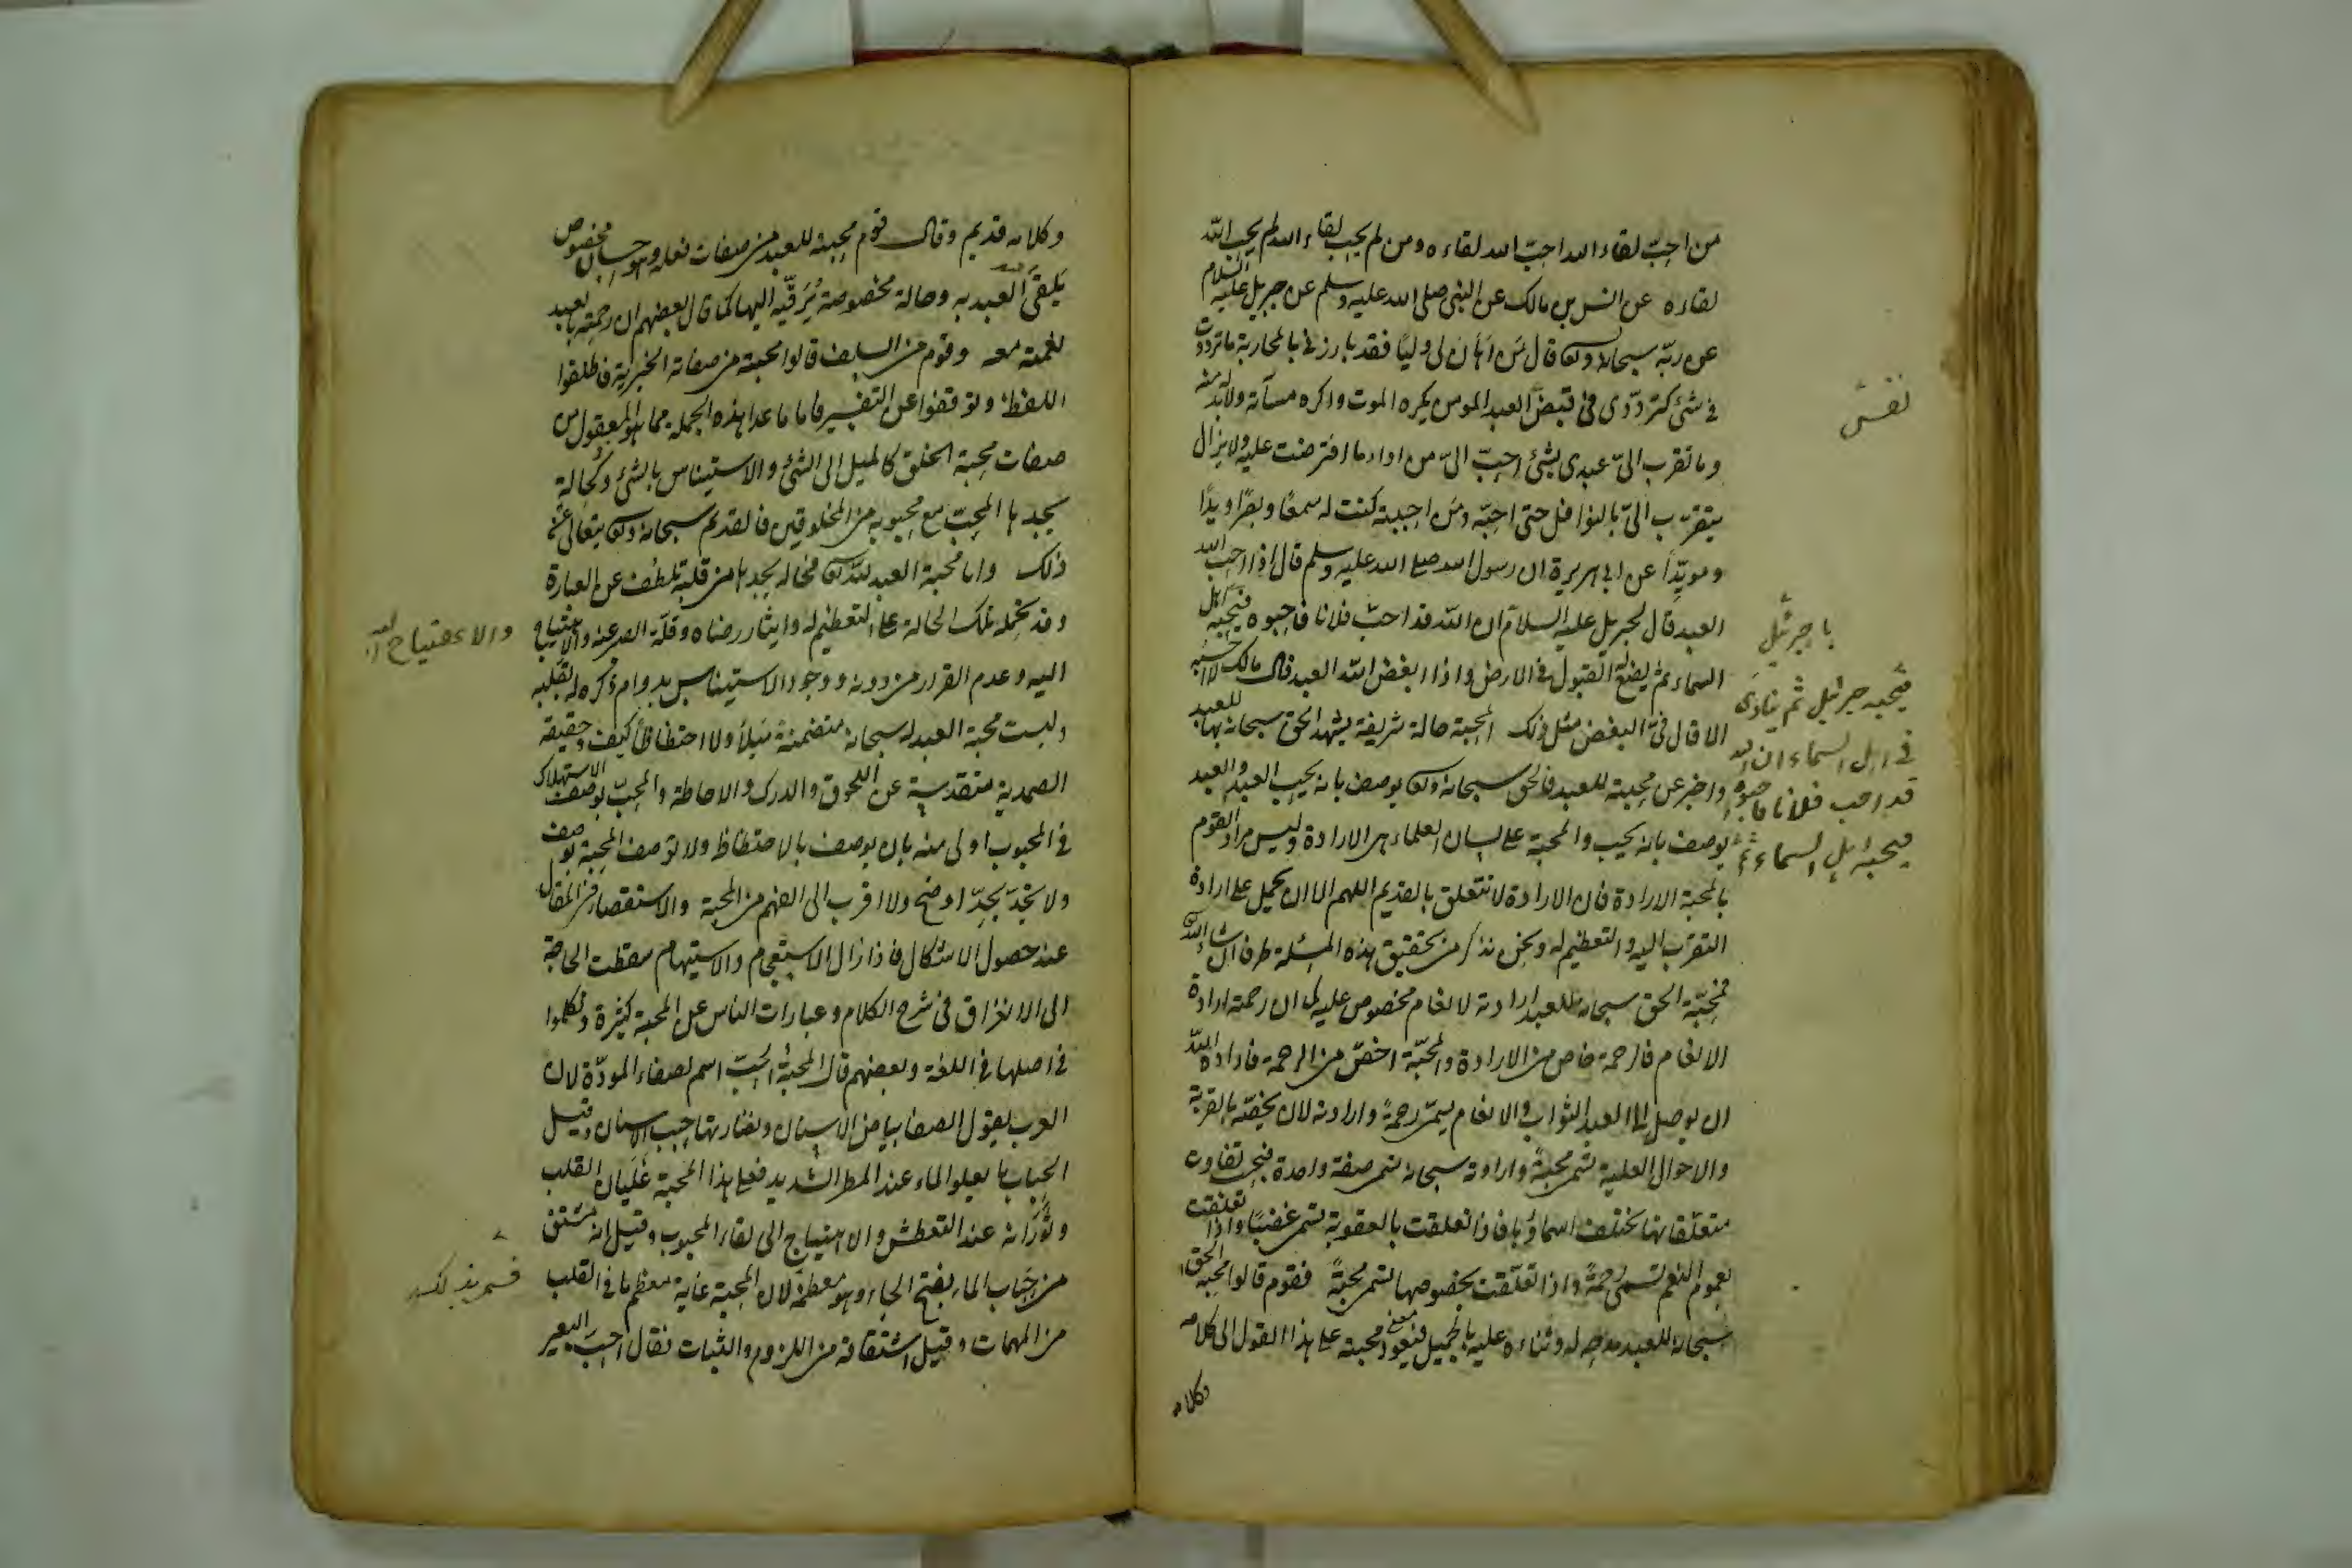 من احبّ لقاء الله احبّ الله لقاءه ومن لم يحب لقاء الله لم يحب الله
لقاءه عن انس بن مالك عن النبي صلى الله عليه وسلم عن جبريل عليه السلام
عن ربّه سبحانه وتع قال مَن اَهان لي وليًا فقد بارزني بالمحاربة ما ترددت
في شئ كتردّدي في قبض العبد المومن يكره الموت واكره مسآته ولابدّ له منه
وما تقرب اليّ عبدي بشئ احبّ اليّ من اداء ما افترضت عليه ولا يزال
يتقرّب اليّ بالنوافل حتى احبّه ومَن احببته كنت له سمعًا وبصرًا ويدًا
ومويّدًا عن ابي هريرة ان رسول الله صلى الله عليه وسلم قال اذا احبّ الله
العبد قال لجبريل عليه السلام ان الله قد احبّ فلانا فاحبوه فيحبّه اهل
السماء ثم يضع له القبول في الارض واذا ابغض الله العبد قال مالك لا احسبه
الا قال في البغض مثل ذلك المحبة حالة شريفة يشهد الحق سبحانه بها للعبد
واخبر عن محبته للعبد فالحق سبحانه وتع يوصف بانه يحب العبد والعبد
يوصف بانه يحب والمحبة على لسان العلماء هي الارادة وليس مراد القوم
بالمحبة الارادة فان الارادة لا تتعلق بالقديم اللهم الا ان يحمل على ارادة
التقرّب اليه والتعظيم له ونحن نذكر من تحقيق هذه المسئلة طرفا ان شاء الله
فمحبّة الحق سبحانه للعبد ارادته لانعام مخصوص عليه كما ان رحمته ارادة
الانعام فالرحمة خاص من الارادة والمحبّة اخصّ من الرحمة فارادة الله
ان يوصل الى العبد الثواب والانعام يسمّى رحمةً وارادته لان يخصّه بالقربة
والاحوال العلية تسمى محبّةً وارادته سبحانه تسمى صفة واحدة فبحسب تفاوت
متعلّقاتها تختلف اسماؤها فاذا تعلقت بالعقوبة تسمى غضبًا واذا تعلقت
بعموم النعم تسمى رحمةً واذا تعلّقت بخصوصها تسمى محبةً فقوم قالوا محبة الحق
سبحانه للعبد مدحه له وثناءه عليه بالجميل فيعود معنى محبته على هذا القول الى كلامه
وكلامه
نفس
يا جبرئيل
فيحبه جبرئيل ثم ينادى
في اهل السماء ان الله
قد احب فلانا فاحبوه
فيحبه اهل السماء ثم
وكلامه قديم وقال قوم محبته للعبد من صفات فعله وهو احسان مخصوص
يَلقى الله العبد به وحالة مخصوصة يُرَقّيه اليها كما قال بعضهم ان رحمته بالعبد
نعمته معه وقوم من السلف قالوا محبته من صفاته الخبرية فاطلقوا
اللفظ وتوقفوا عن التفسير فاما ما عدا هذه الجملة مما هو المعقول من
صفات محبة الخلق كالميل الى الشئ والاستيناس بالشئ وكحالة
يجدها المحبّ مع محبوبه من المخلوقين فالقديم سبحانه وتع يتعالى عن
ذلك واما محبة العبد لله تع فحاله يجدها من قلبه تلطف عن العبارة
وقد تحمله تلك الحالة على التعظيم له وايثار رضاه وقلّة الصبر عنه والاهتياج
اليه وعدم القرار من دونه ووجود الاستيناس بدوام ذكره له بقلبه
وليست محبة العبد له سبحانه متضمنة مَيلاً ولا احتظاظًا كيف وحقيقة
الصمدية متقدسة عن اللحوق والدرك والاحاطة والمحبّ بوصف الاستهلاك
في المحبوب اولى منه بان يوصف بالاحتظاظ ولا توصف المحبة بوصف
ولا تحدّ بحدّ اوضح ولا اقرب الى الفهم من المحبة والاستقصاء في المقال
عند حصول الاشكال فاذا زال الاستعجام والاستبهام سقطت الحاجة
الى الاغراق في شرح الكلام وعبارات الناس عن المحبة كثيرة وتكلموا
في اصلها في اللغة وبعضهم قال المحبّة الحبّ اسم لصفاء المودّة لان
العرب يقول لصفا بياض الاسنان ونضارتها حبب الاسنان وقيل
الحباب ما يعلوا الماء عند المطر الشديد فعلى هذا المحبة غَلَيان القلب
وثَوَرَانه عند التعطش والاهتياج الى لقاء المحبوب وقيل انه مشتق
من حَبَاب الماء بفتح الحاء وهو معظمه لان المحبة غاية معظم ما في القلب
من المهمات وقيل اشتقاقه من اللزوم والثبات نقال احبّ البعير
والاحتياج
فسمي بذلك